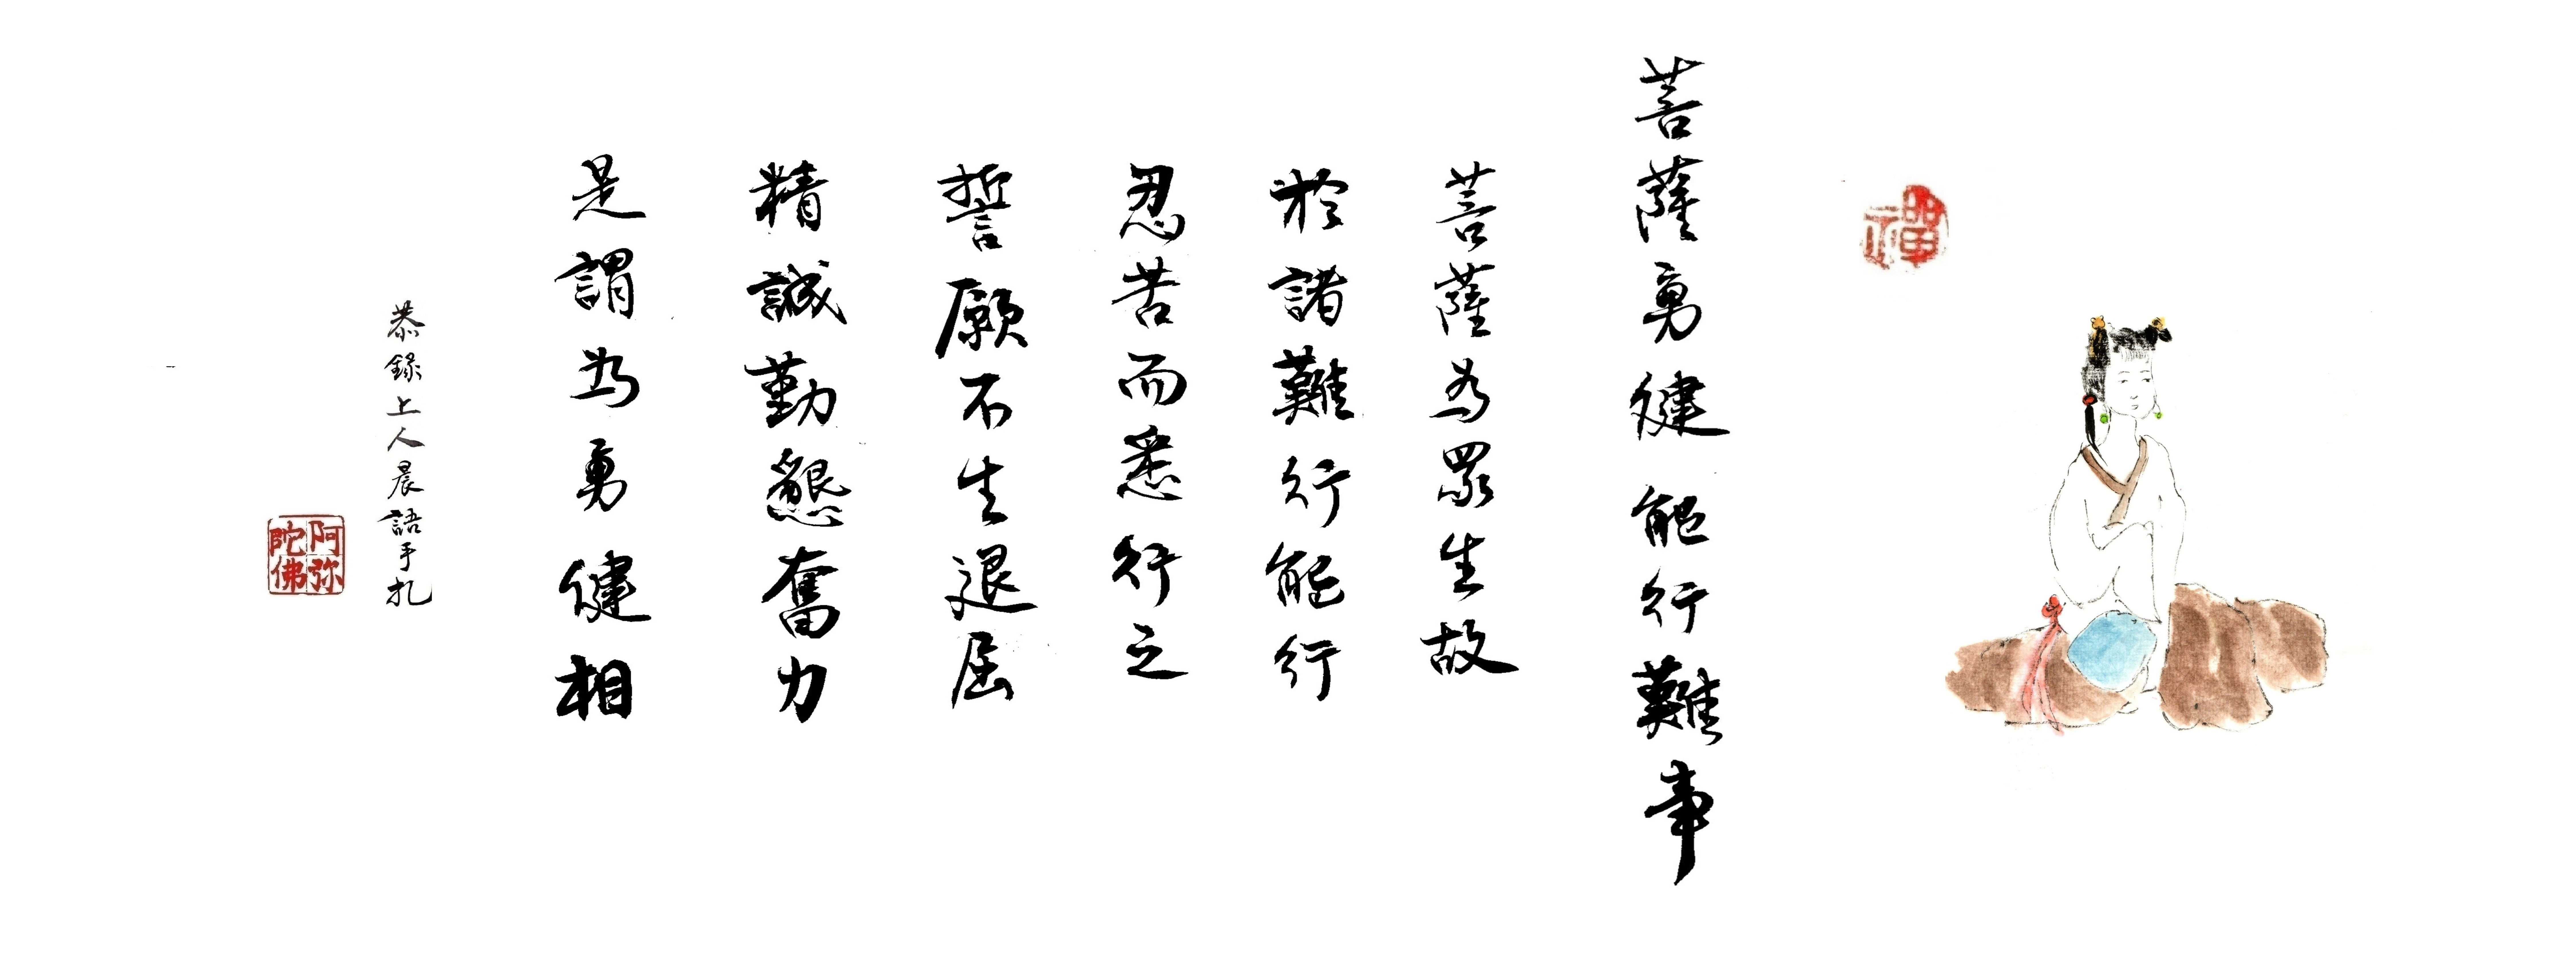 禪
菩薩勇健能行難事
菩薩為眾生故
於諸難行能行
忍苦而悉行之
誓願不生退屈
精誠勤懇奮力
是謂為勇健相
恭錄上人晨語手札
阿弥陀佛